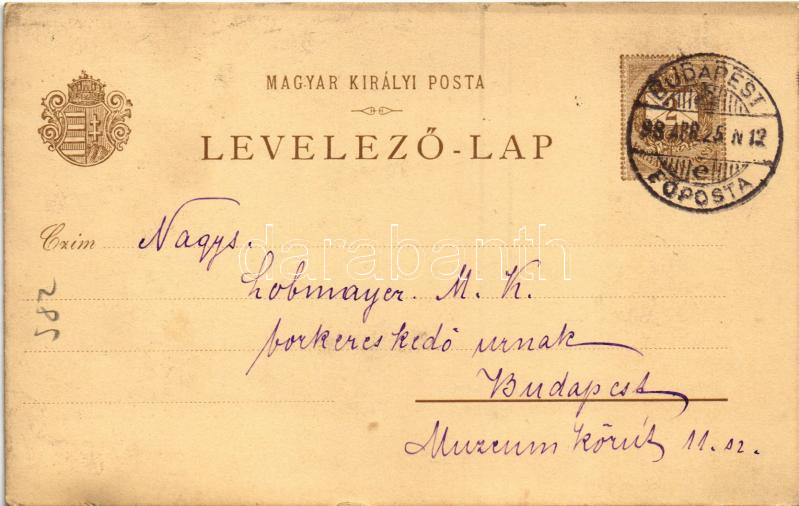 MAGYAR KIRÁLYI POSTA
LEVELEZŐ-LAP
BUDAPEST
98 APR. 25 N 12
e
FŐPOSTA
2
Czím Nagys.
Lobmayer. M. K.
borkereskedő urnak
Budapest
Muzeum körút 11. sz.
582
darabanth